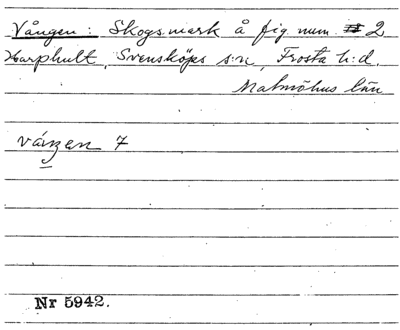 Vången: Skogsmark å fig num. 2
Harphult, Svensköps s:n, Frosta h:d.
Malmöhus län
våŋen 7
Nr 5942.